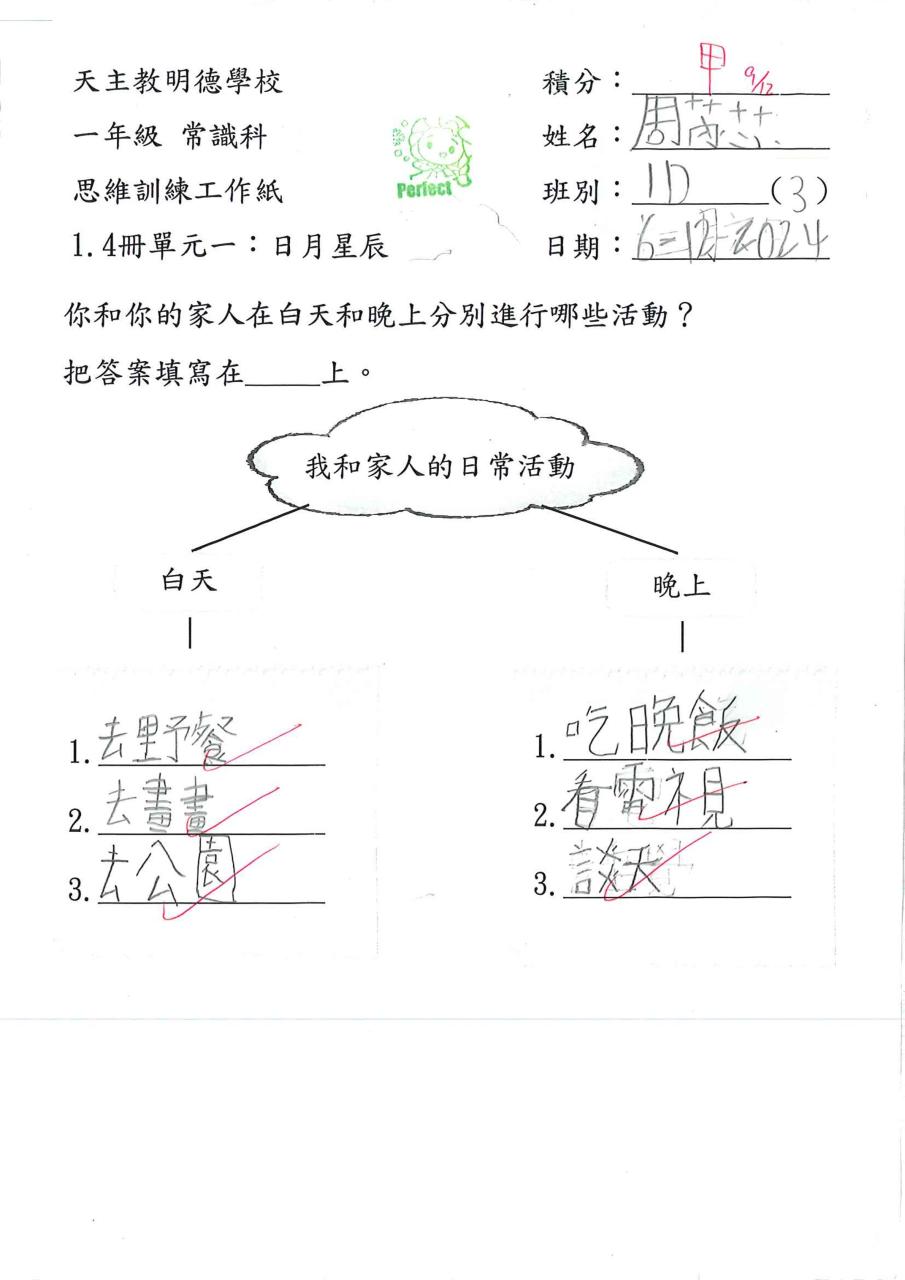 天主教明德學校
積分：甲 9/12
一年級 常識科
姓名：周
Perfect
思維訓練工作紙
班別：1D（3）
1.4冊單元一：日月星辰
日期：2024
你和你的家人在白天和晚上分別進行哪些活動？
把答案填寫在_____上。
我和家人的日常活動
白天
晚上
1.去野餐
2.去畫畫
3.去公園
1.吃晚飯
2.看電視
3.談天